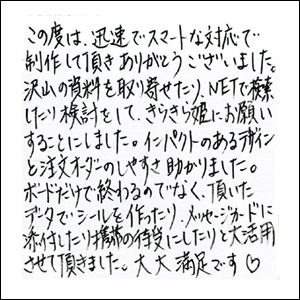 この度は、迅速でスマートな対応で
制作して頂きありがとうございました。
沢山の資料を取り寄せたり、NETで検索
したり検討をして、きらきら姫にお願い
することにしました。インパクトのあるデザイン
と注文オーダーのしやすさ助かりました。
ボードだけで終わるのでなく、頂いた
データでシールを作ったり、メッセージカードに
添付したり携帯の待受にしたりと大活用
させて頂きました。大大満足です♡